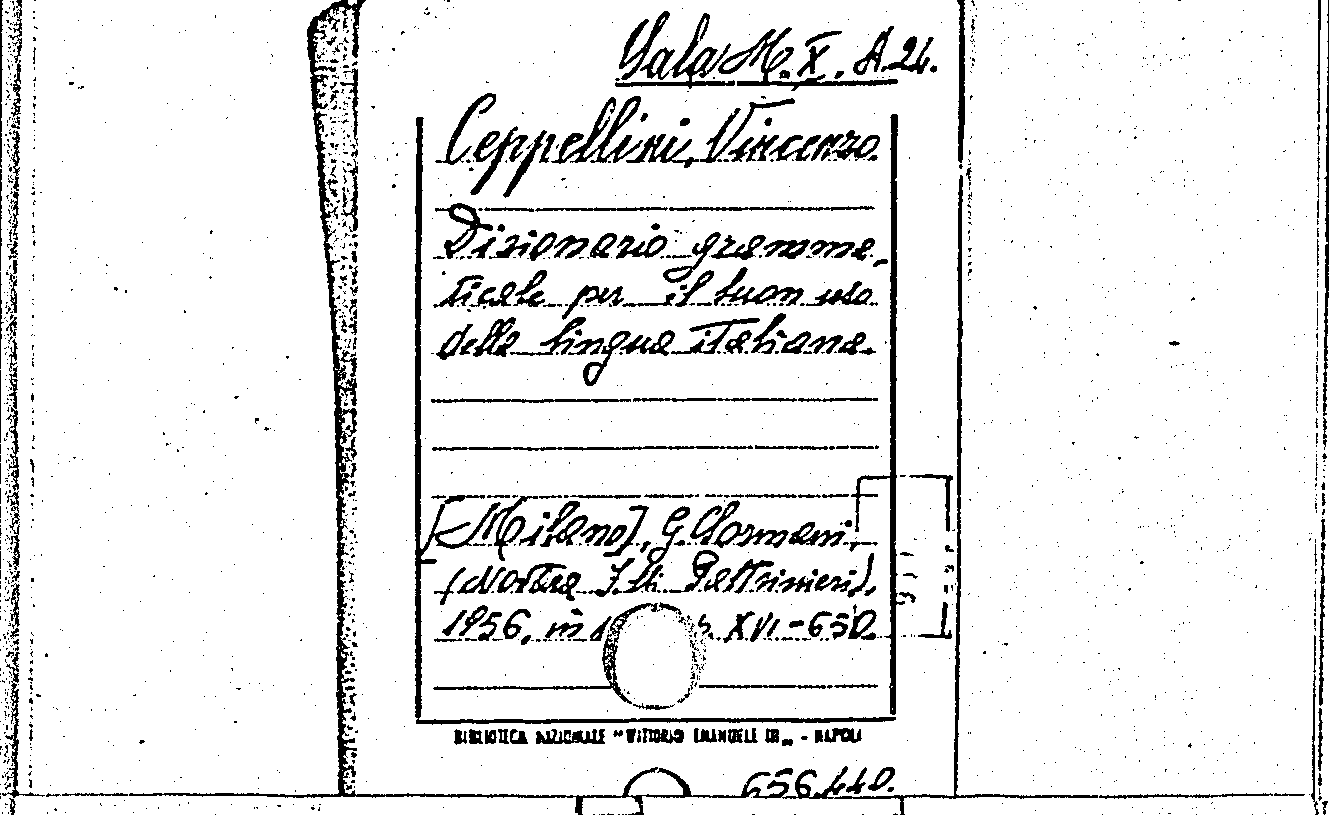 Sala M. X. A. 24.
Ceppellini, Vincenzo.
Dizionario gramma-
ticale per il buon uso
della lingua italiana.
[Milano], G. Normani,
(Novara F.lli Paltrinieri),
1956, in XVI-650.
BIBLIOTECA NAZIONALE "VITTORIO EMANUELE III" - NAPOLI
656.440.